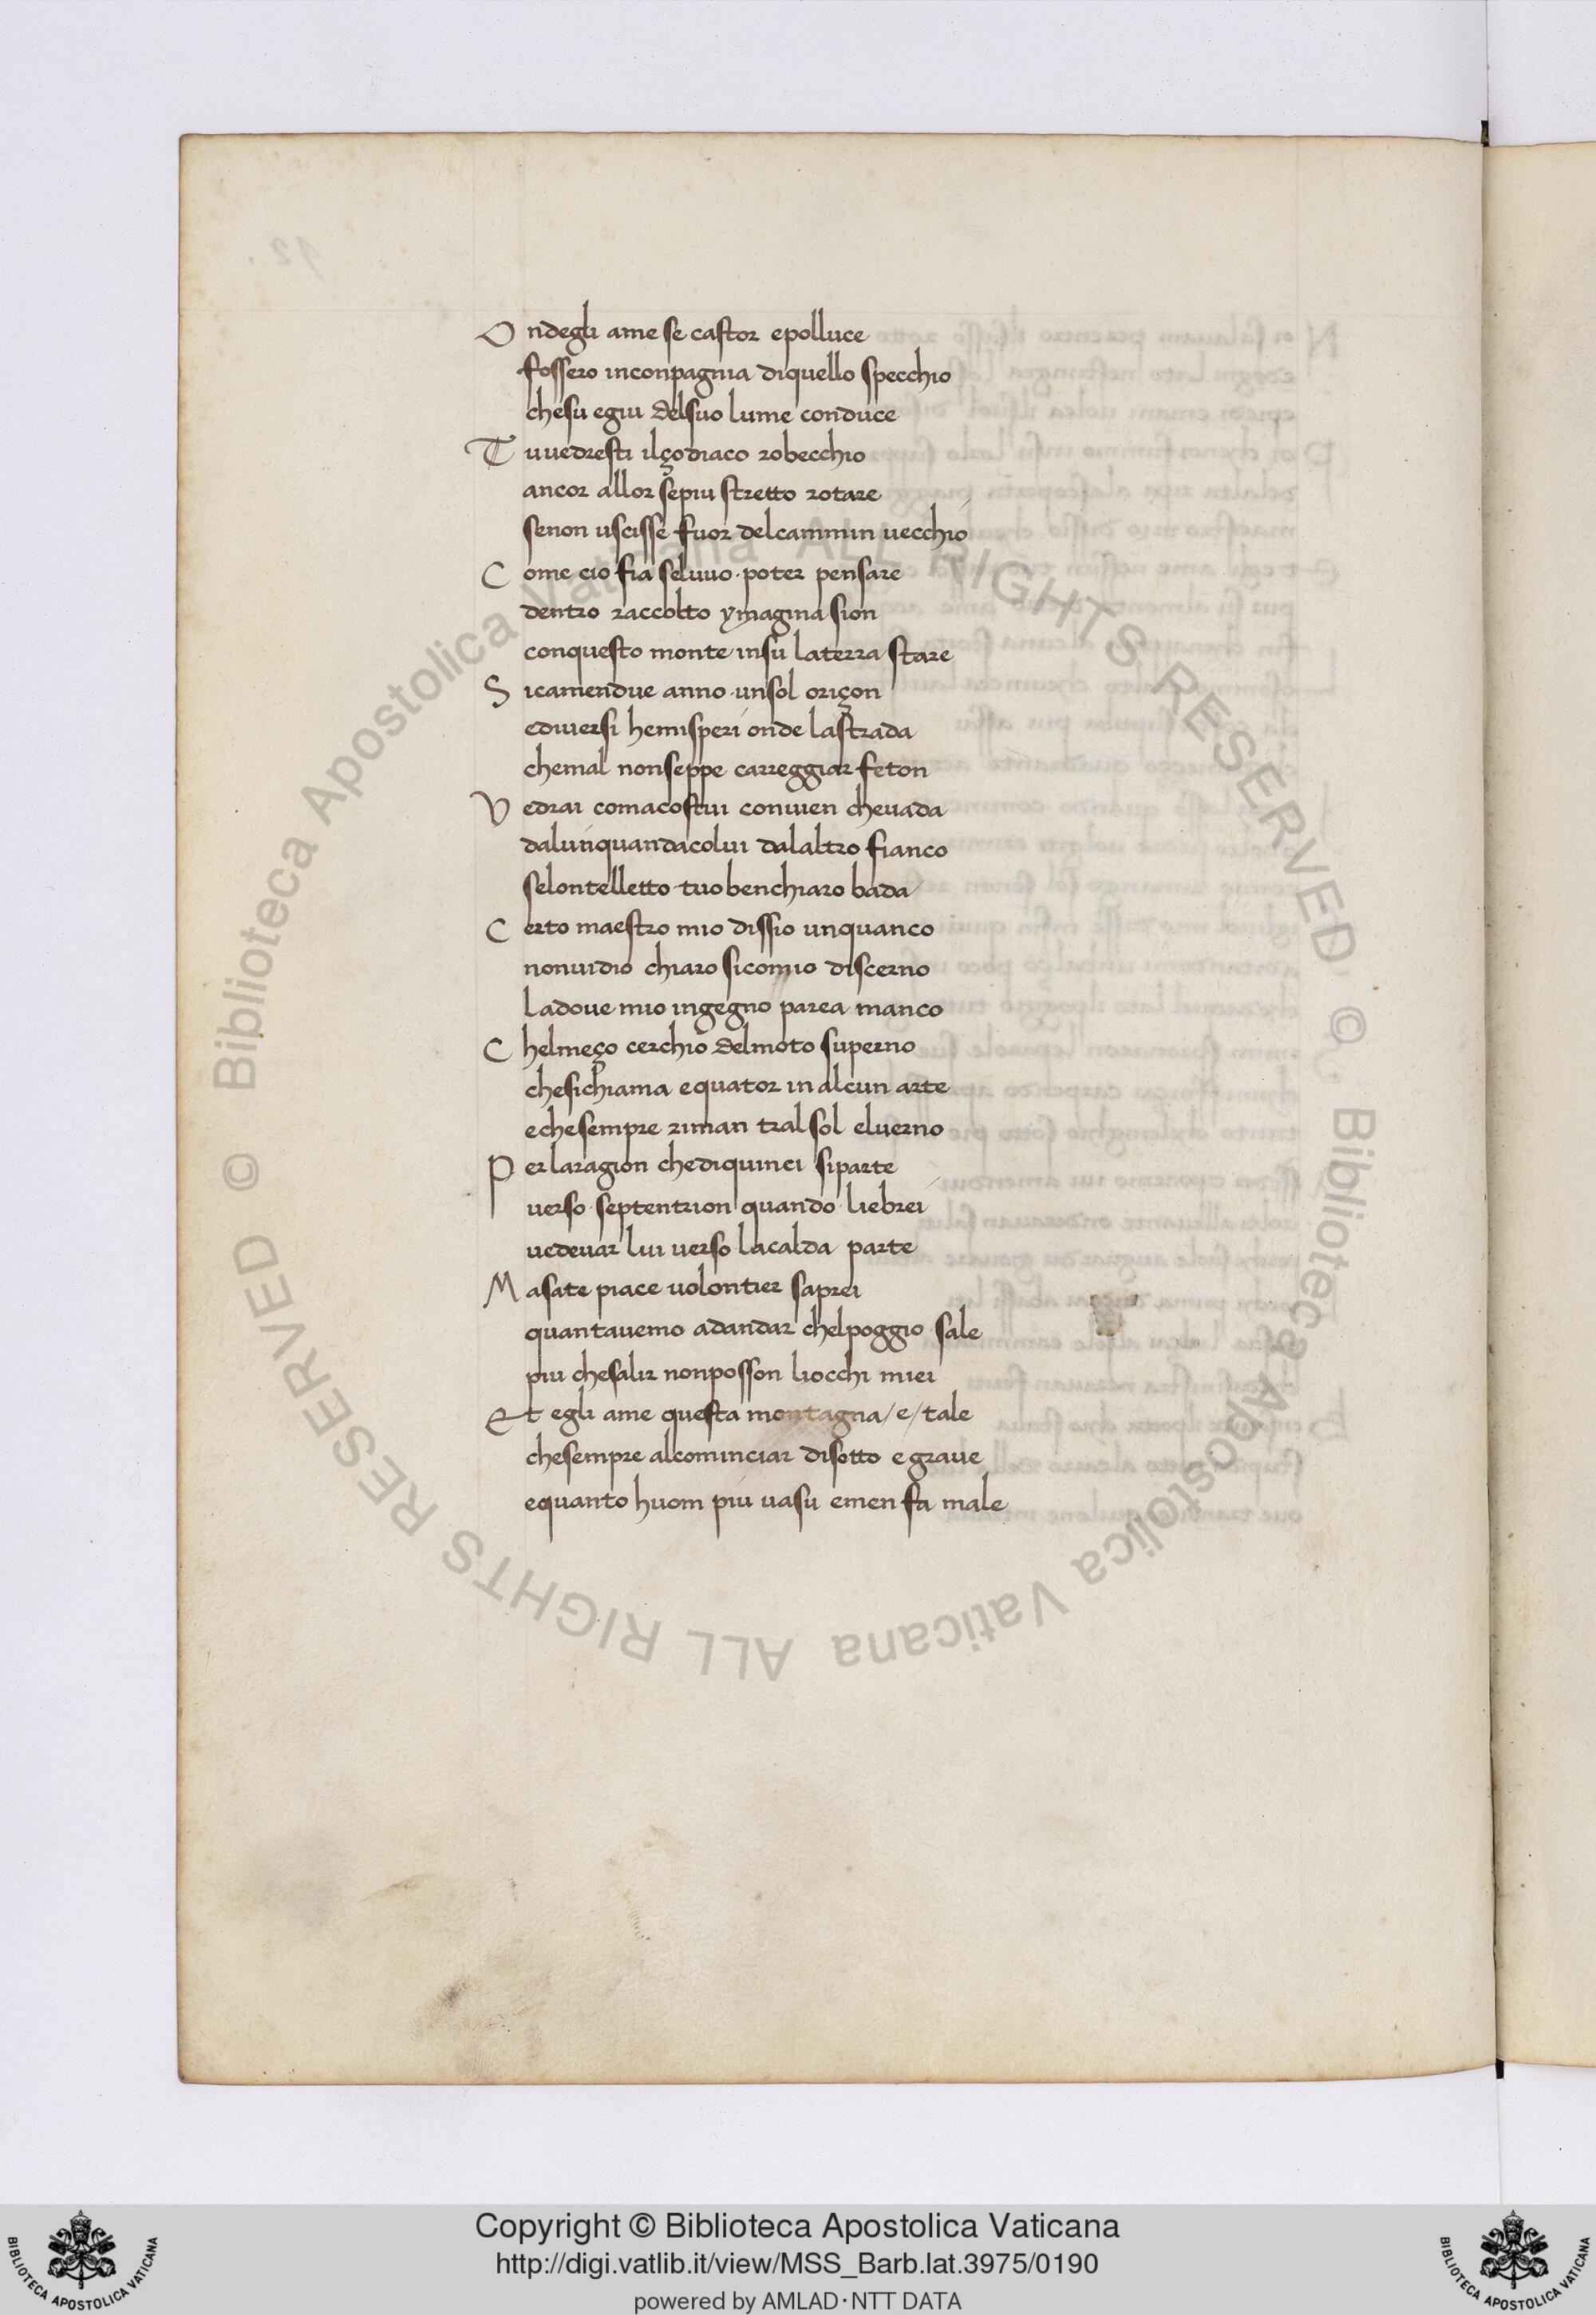 O ndegli ame se castor epolluce
fossero inconpagnia diquello specchio
chesu egiu delsuo lume conduce
T uuedresti ilçodiaco robecchio
ancor allor sepiu stretto rotare
senon uscisse fuor delcammin uecchio
C ome cio fia seluuo poter pensare
dentro raccolto ymagina sion
conquesto monte insu laterra stare
S icamendue anno unsol oriçon
ediuersi hemisperi onde lastrada
chemal nonseppe carreggiar feton
V edrai comacostui conuien cheuada
dalun quandacolui dalaltro fianco
selontelletto tuo benchiaro bada
C erto maestro mio dissio unquanco
nonuidio chiaro sicomio discerno
ladoue mio ingegno parea manco
C helmeço cerchio delmoto superno
chesichiama equator in alcun arte
echesempre riman tralsol eluerno
P erlaragion chediquinci siparte
uerso septentrion quando liebrei
uedeuar lui uerso lacalda parte
M asate piace uolontier saprei
quantauemo adandar chelpoggio sale
piu chesalir nonposson liocchi miei
E t egli ame questa montagna/e/tale
chesempre alcominciar disotto e graue
equanto huom piu uasu emen fa male
© Biblioteca Apostolica Vaticana ALL RIGHTS RESERVED © Biblioteca Apostolica Vaticana ALL RIGHTS RESERVED
Copyright © Biblioteca Apostolica Vaticana
http://digi.vatlib.it/view/MSS_Barb.lat.3975/0190
powered by AMLAD·NTT DATA
BIBLIOTECA APOSTOLICA VATICANA
BIBLIOTECA APOSTOLICA VATICANA